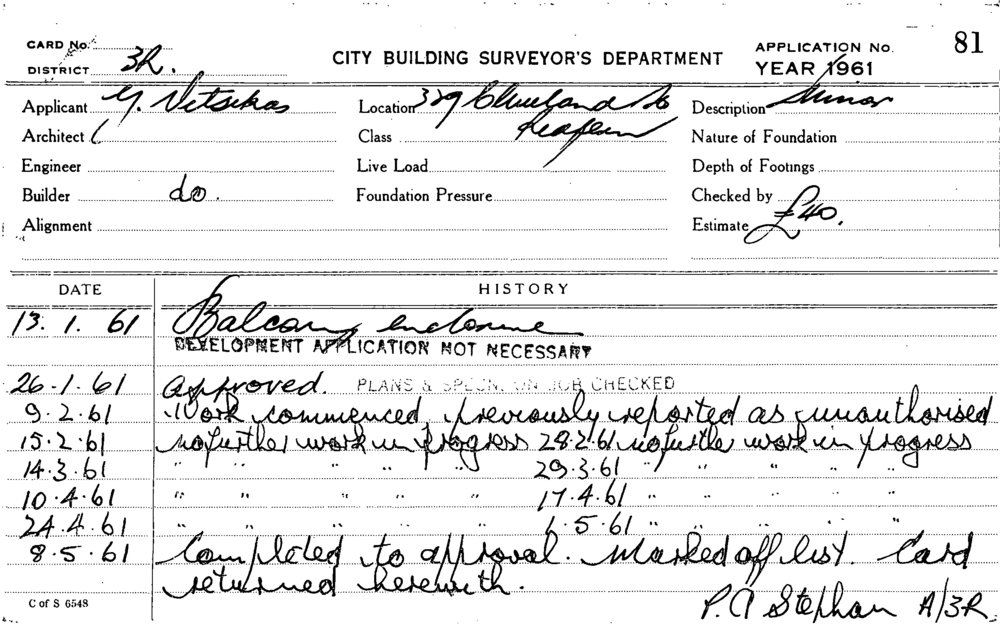 CARD No.
DISTRICT 3R.
CITY BUILDING SURVEYOR'S DEPARTMENT
APPLICATION No. 81
YEAR 1961
Applicant G. Vitsikas
Location 329 Cleveland St
Redfern
Description Minor
Architect
Class
Nature of Foundation
Engineer
Live Load
Depth of Footings
Builder do.
Foundation Pressure
Checked by
Alignment
Estimate £40.
DATE HISTORY
13. 1. 61 Balcony enclosure
DEVELOPMENT APPLICATION NOT NECESSARY
26.1.61 Approved. PLANS & SPECN. ON JOB CHECKED
9.2.61 Work commenced previously reported as unauthorised
15.2.61 no further work in progress 28.2.61 no further work in progress
14.3.61 " " " " " 29.3.61 " " " " "
10.4.61 " " " " " 17.4.61 " " " " "
24.4.61 " " " " " 1.5.61 " " " " "
8.5.61 Completed to approval. Marked off list. Card
returned herewith.
C of S 6548
P. A Stephan A/3R.